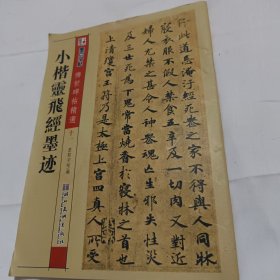 傳世碑帖精選
小楷靈飛經墨迹
行此道忌淹汙經死喪之家不得與人同牀
寢衣服不假人禁食五辛及一切肉又對近
婦人尤禁之甚令人神喪魂亡生邪失性災
及三世死為下鬼常當燒香於寢牀之首也
上清瓊宮玉符乃是太極上宮四真人所受